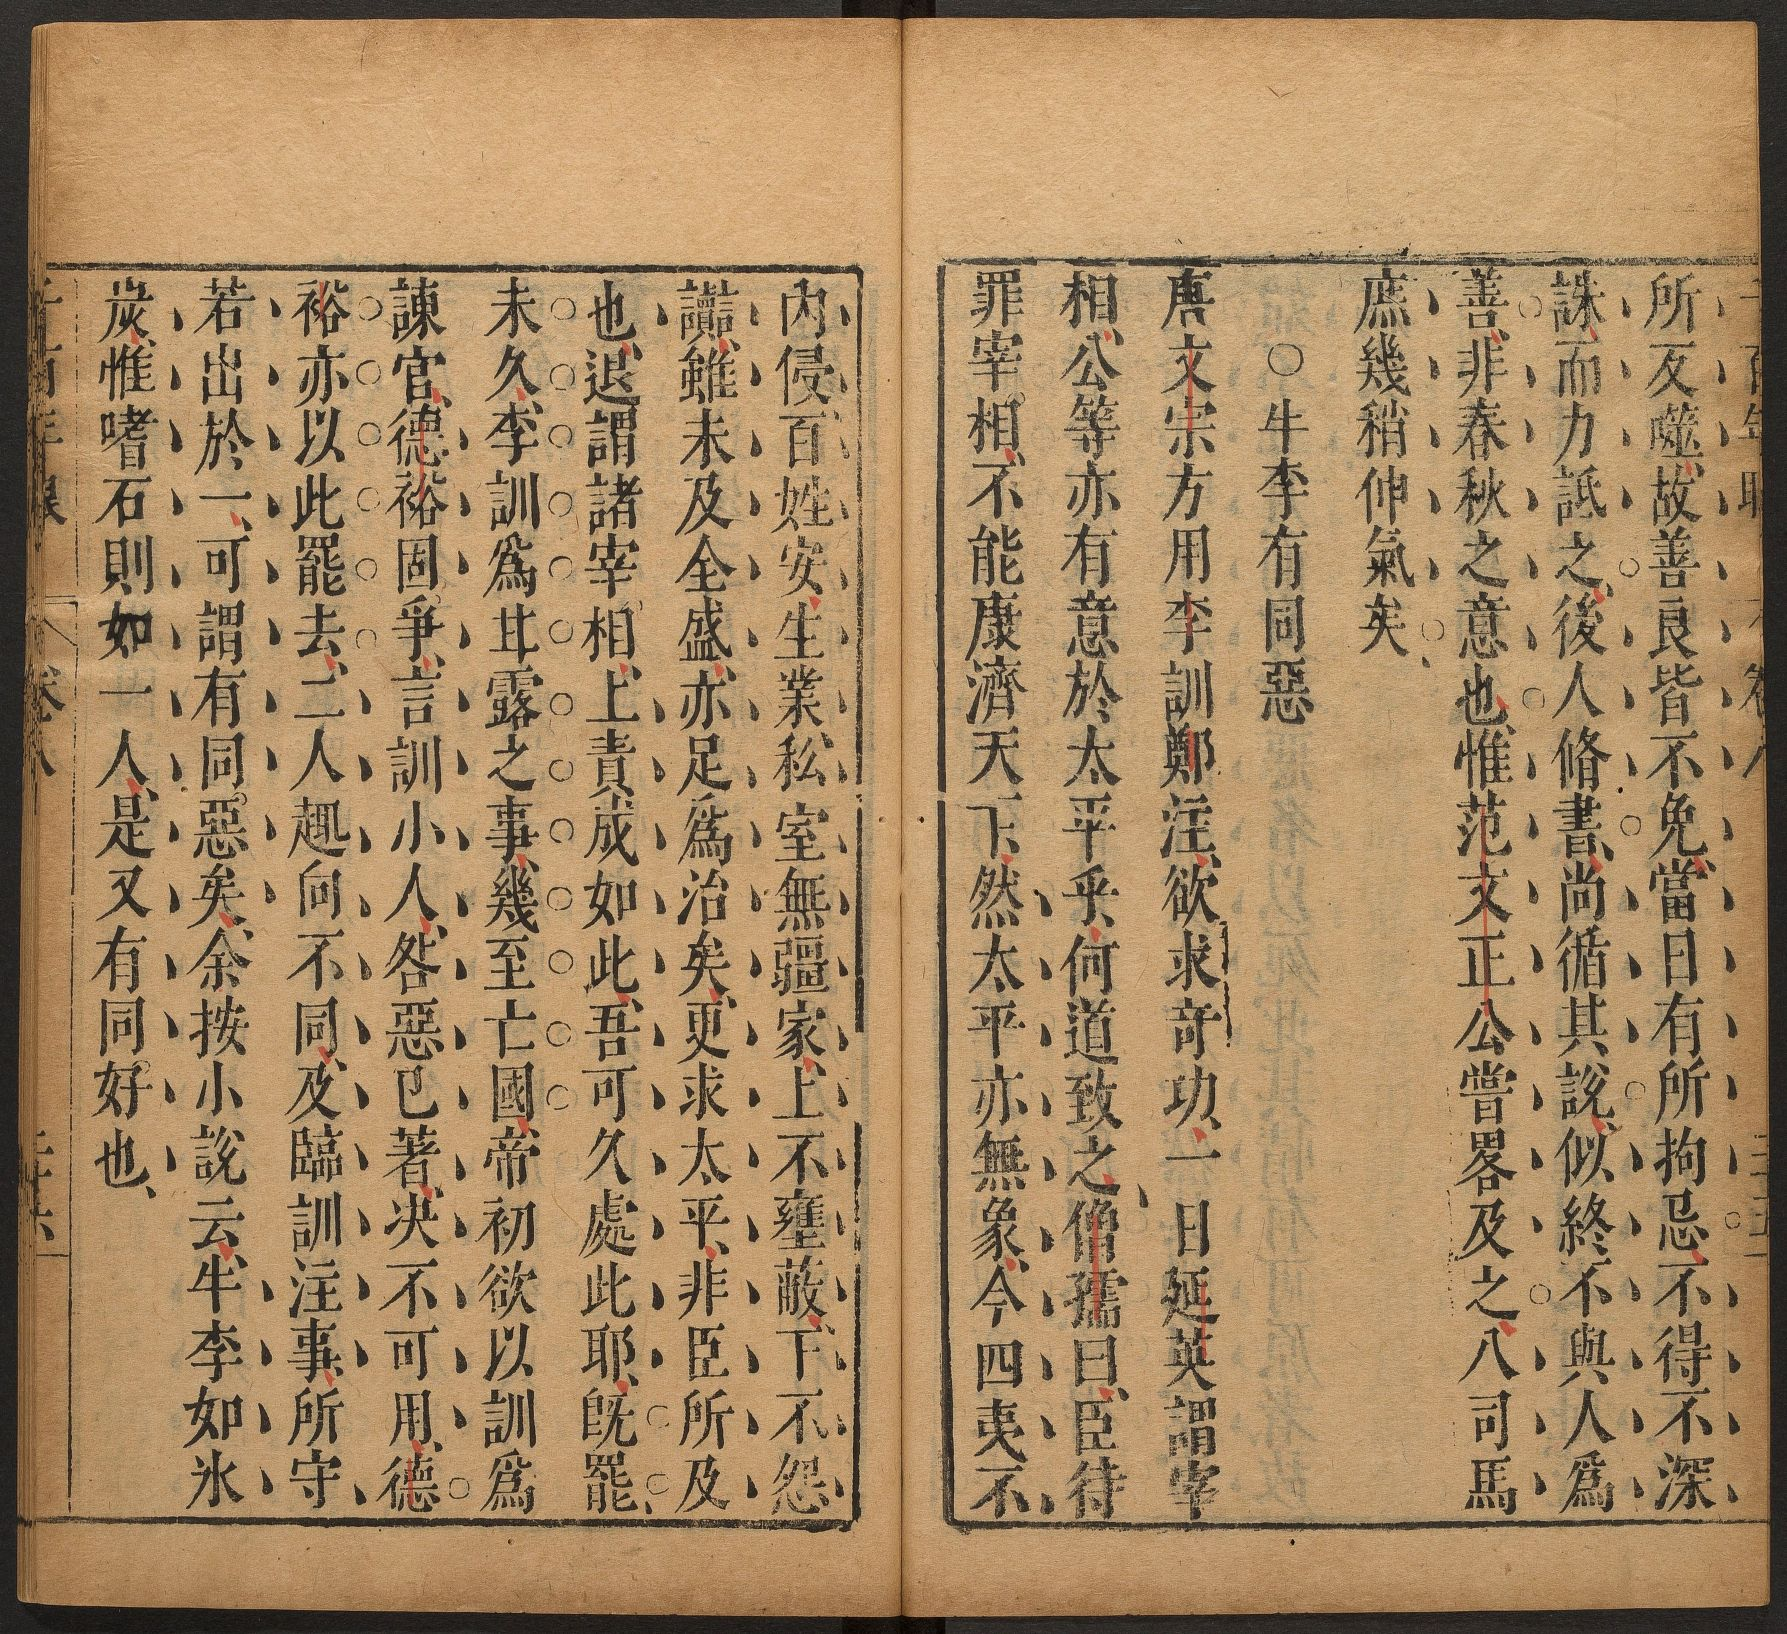 所反噬故善良皆不免當日有所拘忌不得不深
誅而力詆之後人脩書尚循其說似終不與人為
善非春秋之意也惟范文正公嘗畧及之八司馬
庶幾稍伸氣矣
○牛李有同惡
唐文宗方用李訓鄭注欲求奇功一日延英謂宰
相公等亦有意於太平乎何道致之僧孺曰臣待
罪宰相不能康濟天下然太平亦無象今四夷不
內侵百姓安生業私室無疆家上不壅蔽下不怨
讟雖未及全盛亦足爲治矣更求太平非臣所及
也退謂諸宰相上責成如此吾可久處此耶旣罷
未久李訓爲甘露之事幾至亡國帝初欲以訓爲
諫官德裕固爭言訓小人咎惡已著决不可用德
裕亦以此罷去二人趣向不同及臨訓注事所守
若出於一可謂有同惡矣余按小說云牛李如氷
炭惟嗜石則如一人是又有同好也
卷八